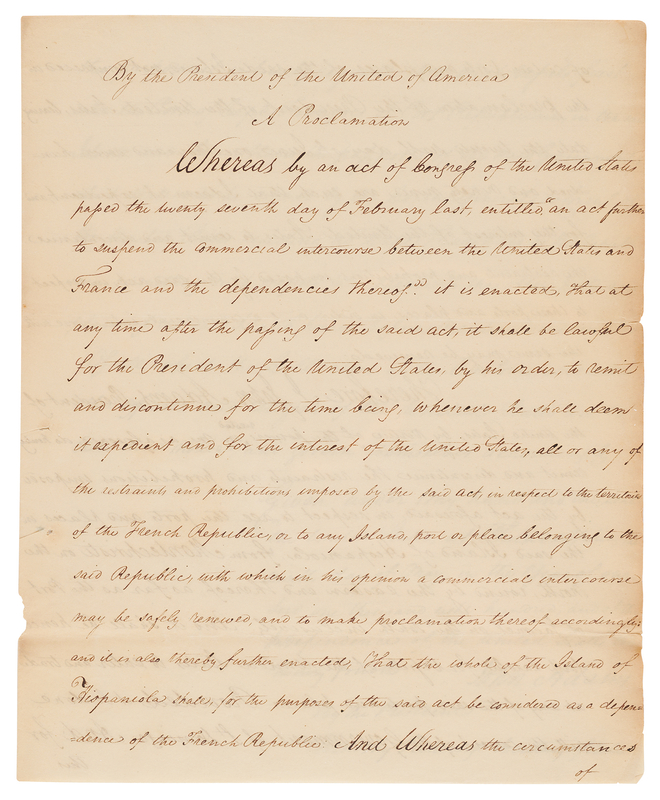 By the President of the United of America
A Proclamation
Whereas by an act of Congress of the United States
passed the twenty seventh day of February last, entitled, "an act further
to suspend the commercial intercourse between the United States and
France and the dependencies thereof" it is enacted, That at
any time after the passing of the said act, it shall be lawful
for the President of the United States, by his order, to remit
and discontinue for the time being, whenever he shall deem
it expedient and for the interest of the United States, all or any of
the restraints and prohibitions imposed by the said act, in respect to the territories
of the French Republic, or to any Island, port or place belonging to the
said Republic, with which in his opinion a commercial intercourse
may be safely renewed, and to make proclamation thereof accordingly:
and it is also thereby further enacted, That the whole of the Island of
Hispaniola shall, for the purposes of the said act be considered as a depen=
=dence of the French Republic. And Whereas the circumstances
of